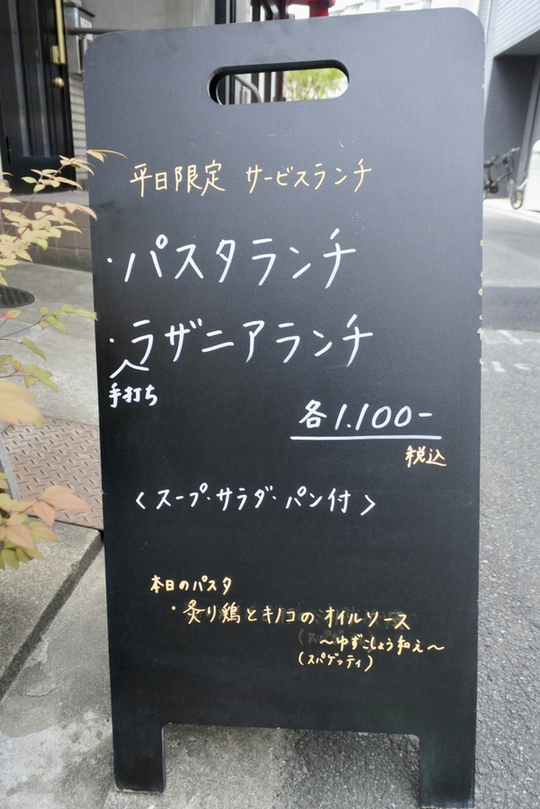 平日限定 サービスランチ
・パスタランチ
・ラザニアランチ
手打ち
各1.100-
税込
〈スープ・サラダ・パン付〉
本日のパスタ
・炙り鶏とキノコのオイルソース
〜ゆずこしょう和え〜
(スパゲッティ)